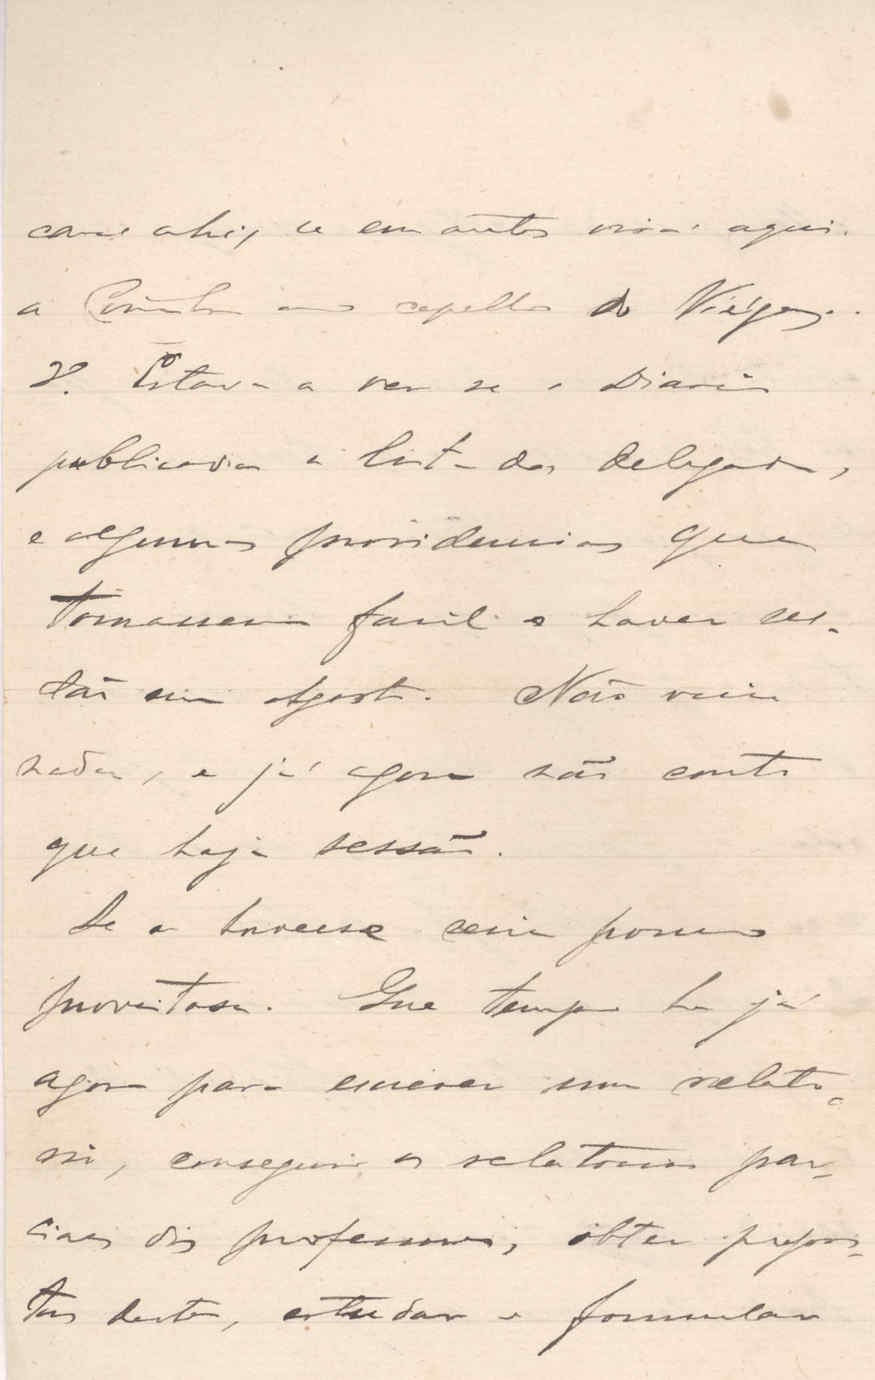 ahi, e em antes aqui.
a Coimbra capello do Viégas.
Estava a ver se o Diario
publicava a lista dos delegados,
e algumas providencias que
tornassem facil o haver ses-
são em Agosto. Não veiu
nada, e já agora não conto
que haja sessão.
Se a houvesse seria pouco
proveitosa. Que tempo ha já
agora para escrever um relato-
rio, conseguir os relatorios par-
ciaes dos professores, obter propos-
tas destes, estudar e formular